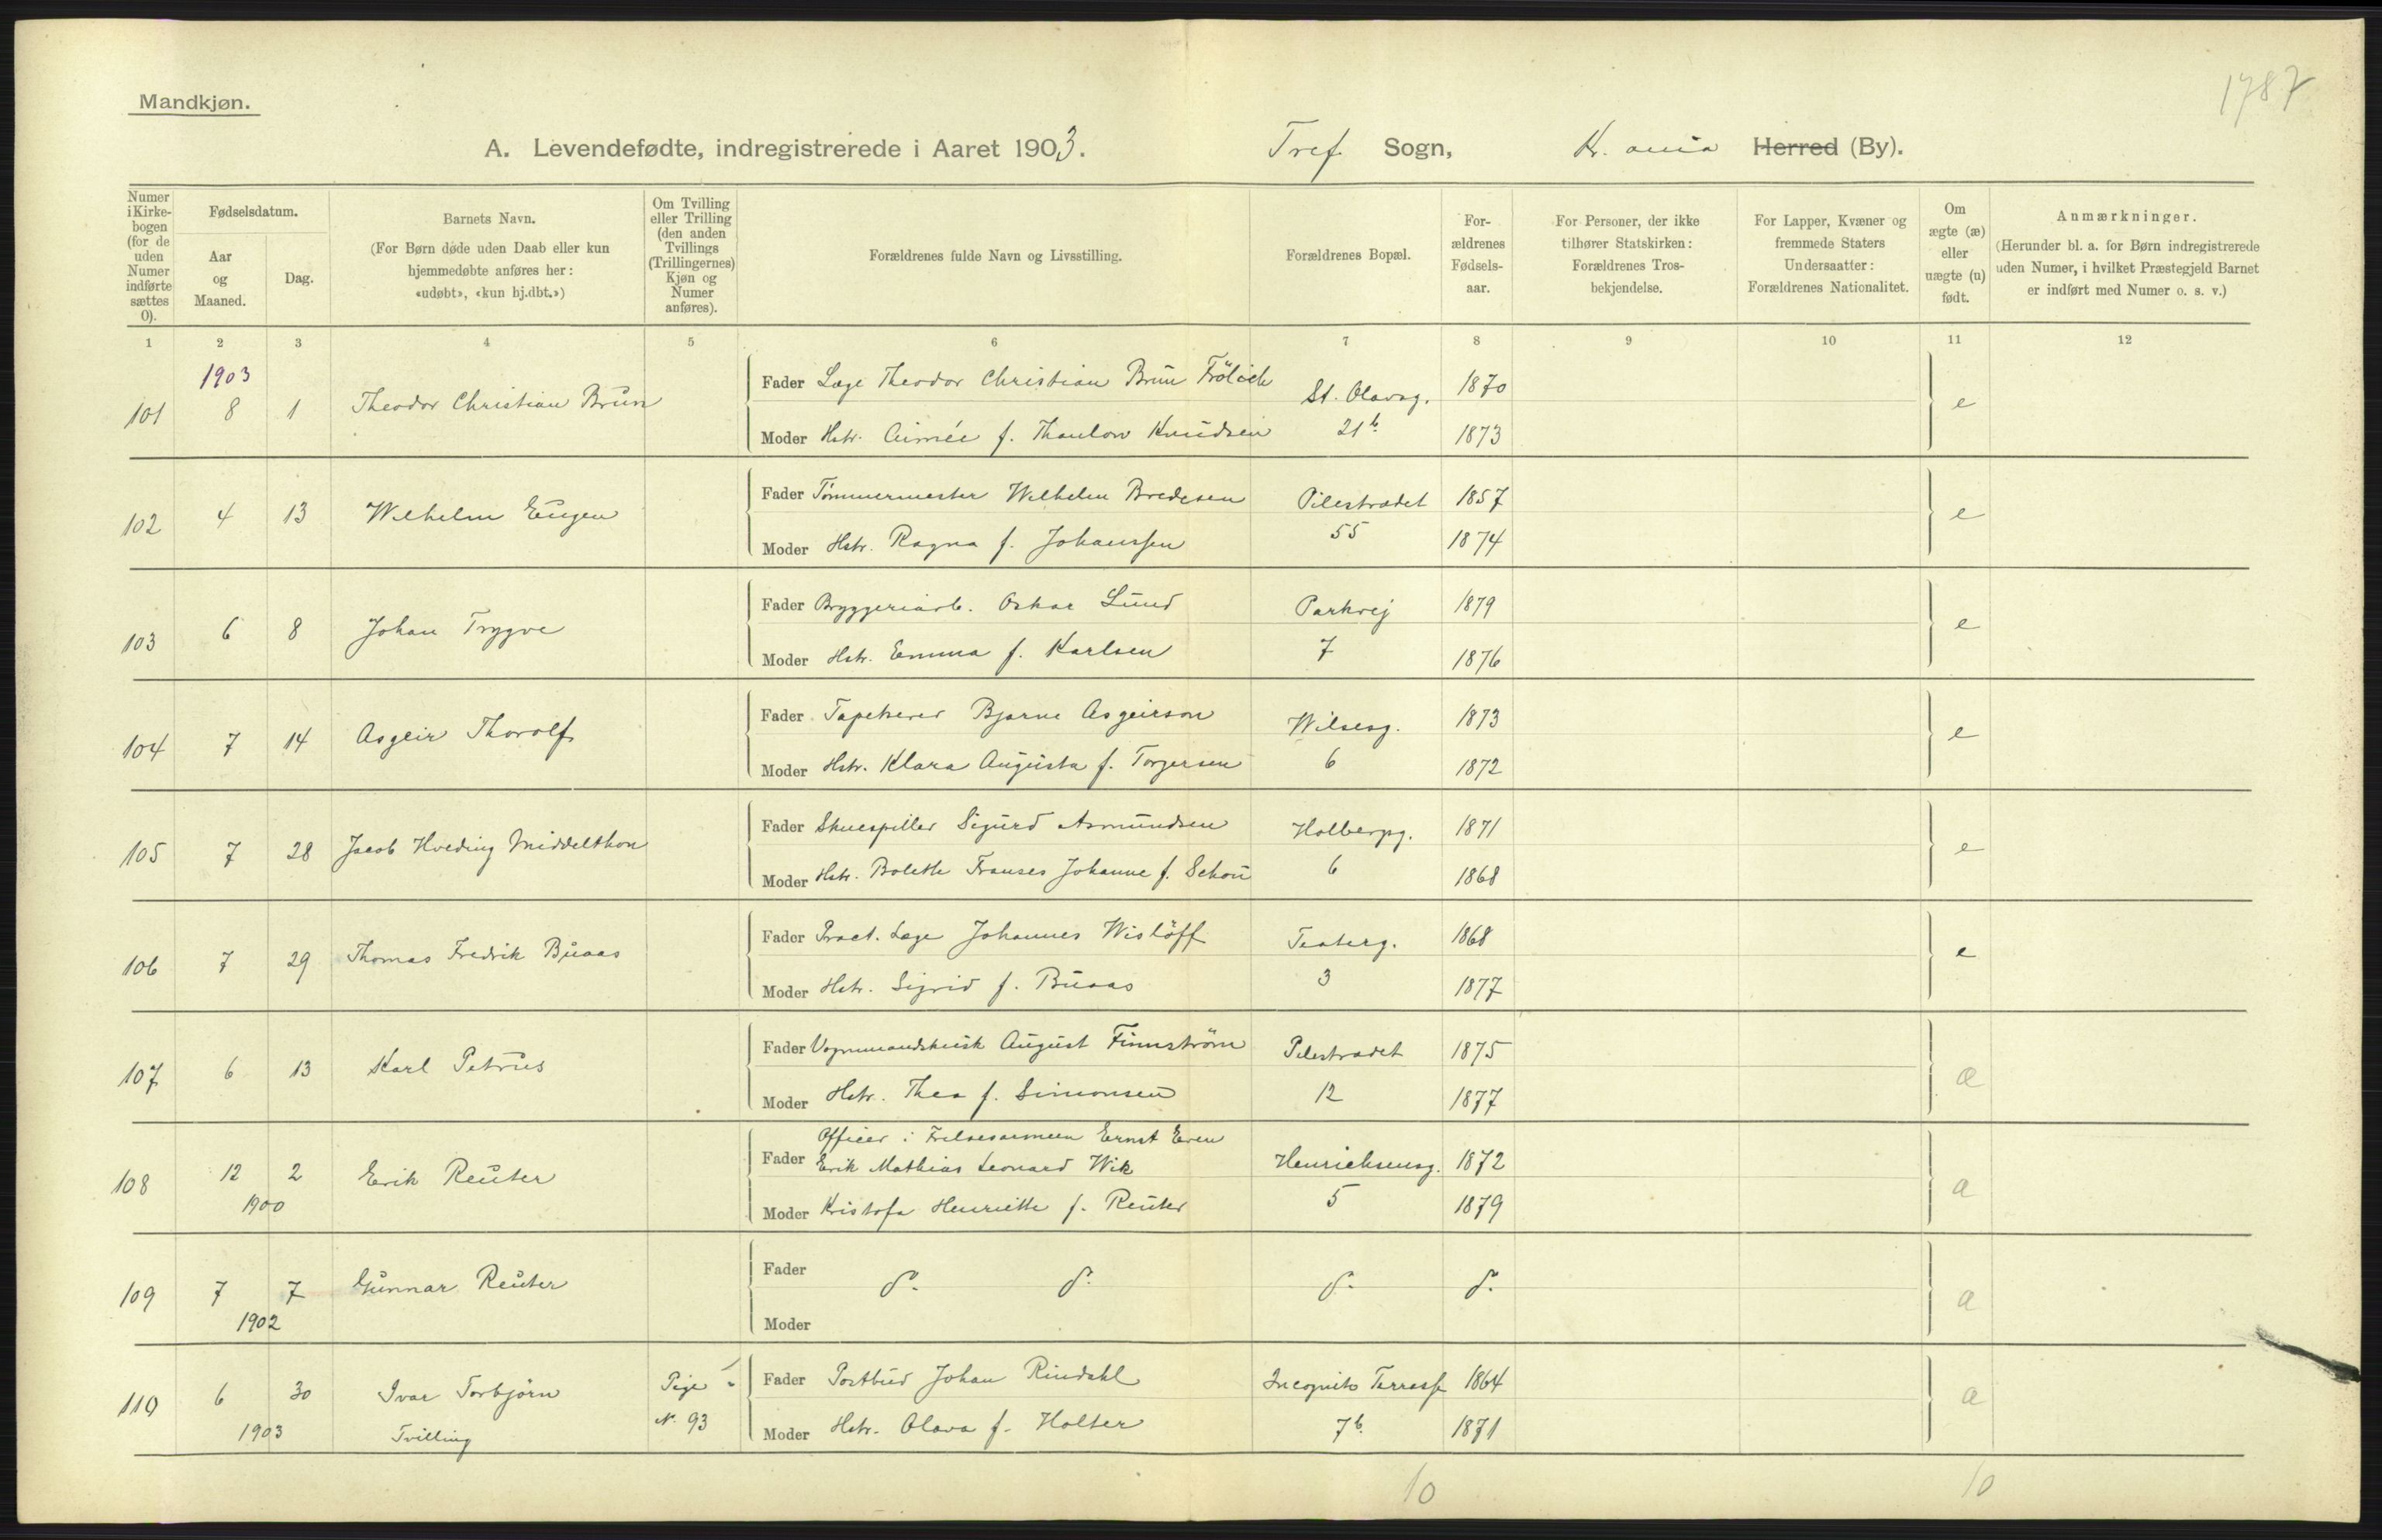 1787
Mandkjøn.
A. Levendefødte, indregistrerede i Aaret 1903. Tref. Sogn, Kr. ania Herred (By).
Numer i Kirke-bogen (for de uden Numer indførte sættes 0).
Fødselsdatum.
Aar og Maaned.
Dag.
Barnets Navn.
(For Børn døde uden Daab eller kun hjemmedøbte anføres her: «udøbt», «kun hj.dbt.»)
Om Tvilling eller Trilling (den anden Tvillings (Trillingernes) Kjøn og Numer anføres).
Forældrenes fulde Navn og Livsstilling.
Forældrenes Bopæl.
For-ældrenes Fødsels-aar.
For Personer, der ikke tilhører Statskirken: Forældrenes Tros-bekjendelse.
For Lapper, Kvæner og fremmede Staters Undersaatter: Forældrenes Nationalitet.
Om ægte (æ) eller uægte (u) født.
Anmærkninger.
(Herunder bl. a. for Børn indregistrerede uden Numer, i hvilket Præstegjeld Barnet er indført med Numer o. s. v.)
1 2 3 4 5 6 7 8 9 10 11 12
1903
101 8 1 Theodor Christian Brun Fader Læge Theodor Christian Brun Frölich St. Olavsg. 1870 e
Moder Hstr. Aimée f. Thaulow Knudsen 21 b. 1873
102 4 13 Wilhelm Eugen Fader Tømmermester Wilhelm Bredesen Pilestrædet 1857 e
Moder Hstr. Ragna f. Johanssen 55 1874
103 6 8 Johan Trygve Fader Bryggeriarb. Oskar Lund Parkvej 1879 e
Moder Hstr. Emma f. Karlsen 7 1876
104 7 14 Asgeir Thorolf Fader Tapetserer Bjarne Asgeirson Wilsesg. 1873 e
Moder Hstr. Klara Augusta f. Torgersen 6 1872
105 7 28 Jacob Hveding Middelthon Fader Skuespiller Sigurd Asmundsen Holbergsg. 1871 e
Moder Hstr. Bolette Franses Johanne f. Schou 6 1868
106 7 29 Thomas Fredrik Buaas Fader Pract. Læge Johannes Wislöff Teaterg. 1868 e
Moder Hstr. Sigrid f. Buaas 3 1877
107 6 13 Karl Petrus Fader Vognmandskusk August Finnström Pilestrædet 1875 æ
Moder Hstr. Thea f. Simonsen 12 1877
108 12 2 Erik Reuter Officer i Frelsesarmeen Ernst Even
Fader Erik Mathias Leonard Wik Henrichsensg. 1872 a
1900 Moder Kristofa Henriette f. Reuter 5 1879
109 7 7 Gunnar Reuter Fader d. d. d. d. a
1902 Moder
110 6 30 Ivar Torbjörn Pige Fader Postbud Johan Rindahl Incognito Terrasse 1864 a
1903 Tvilling N. 93 Moder Hstr. Olava f. Holter 7 b. 1871
10 10